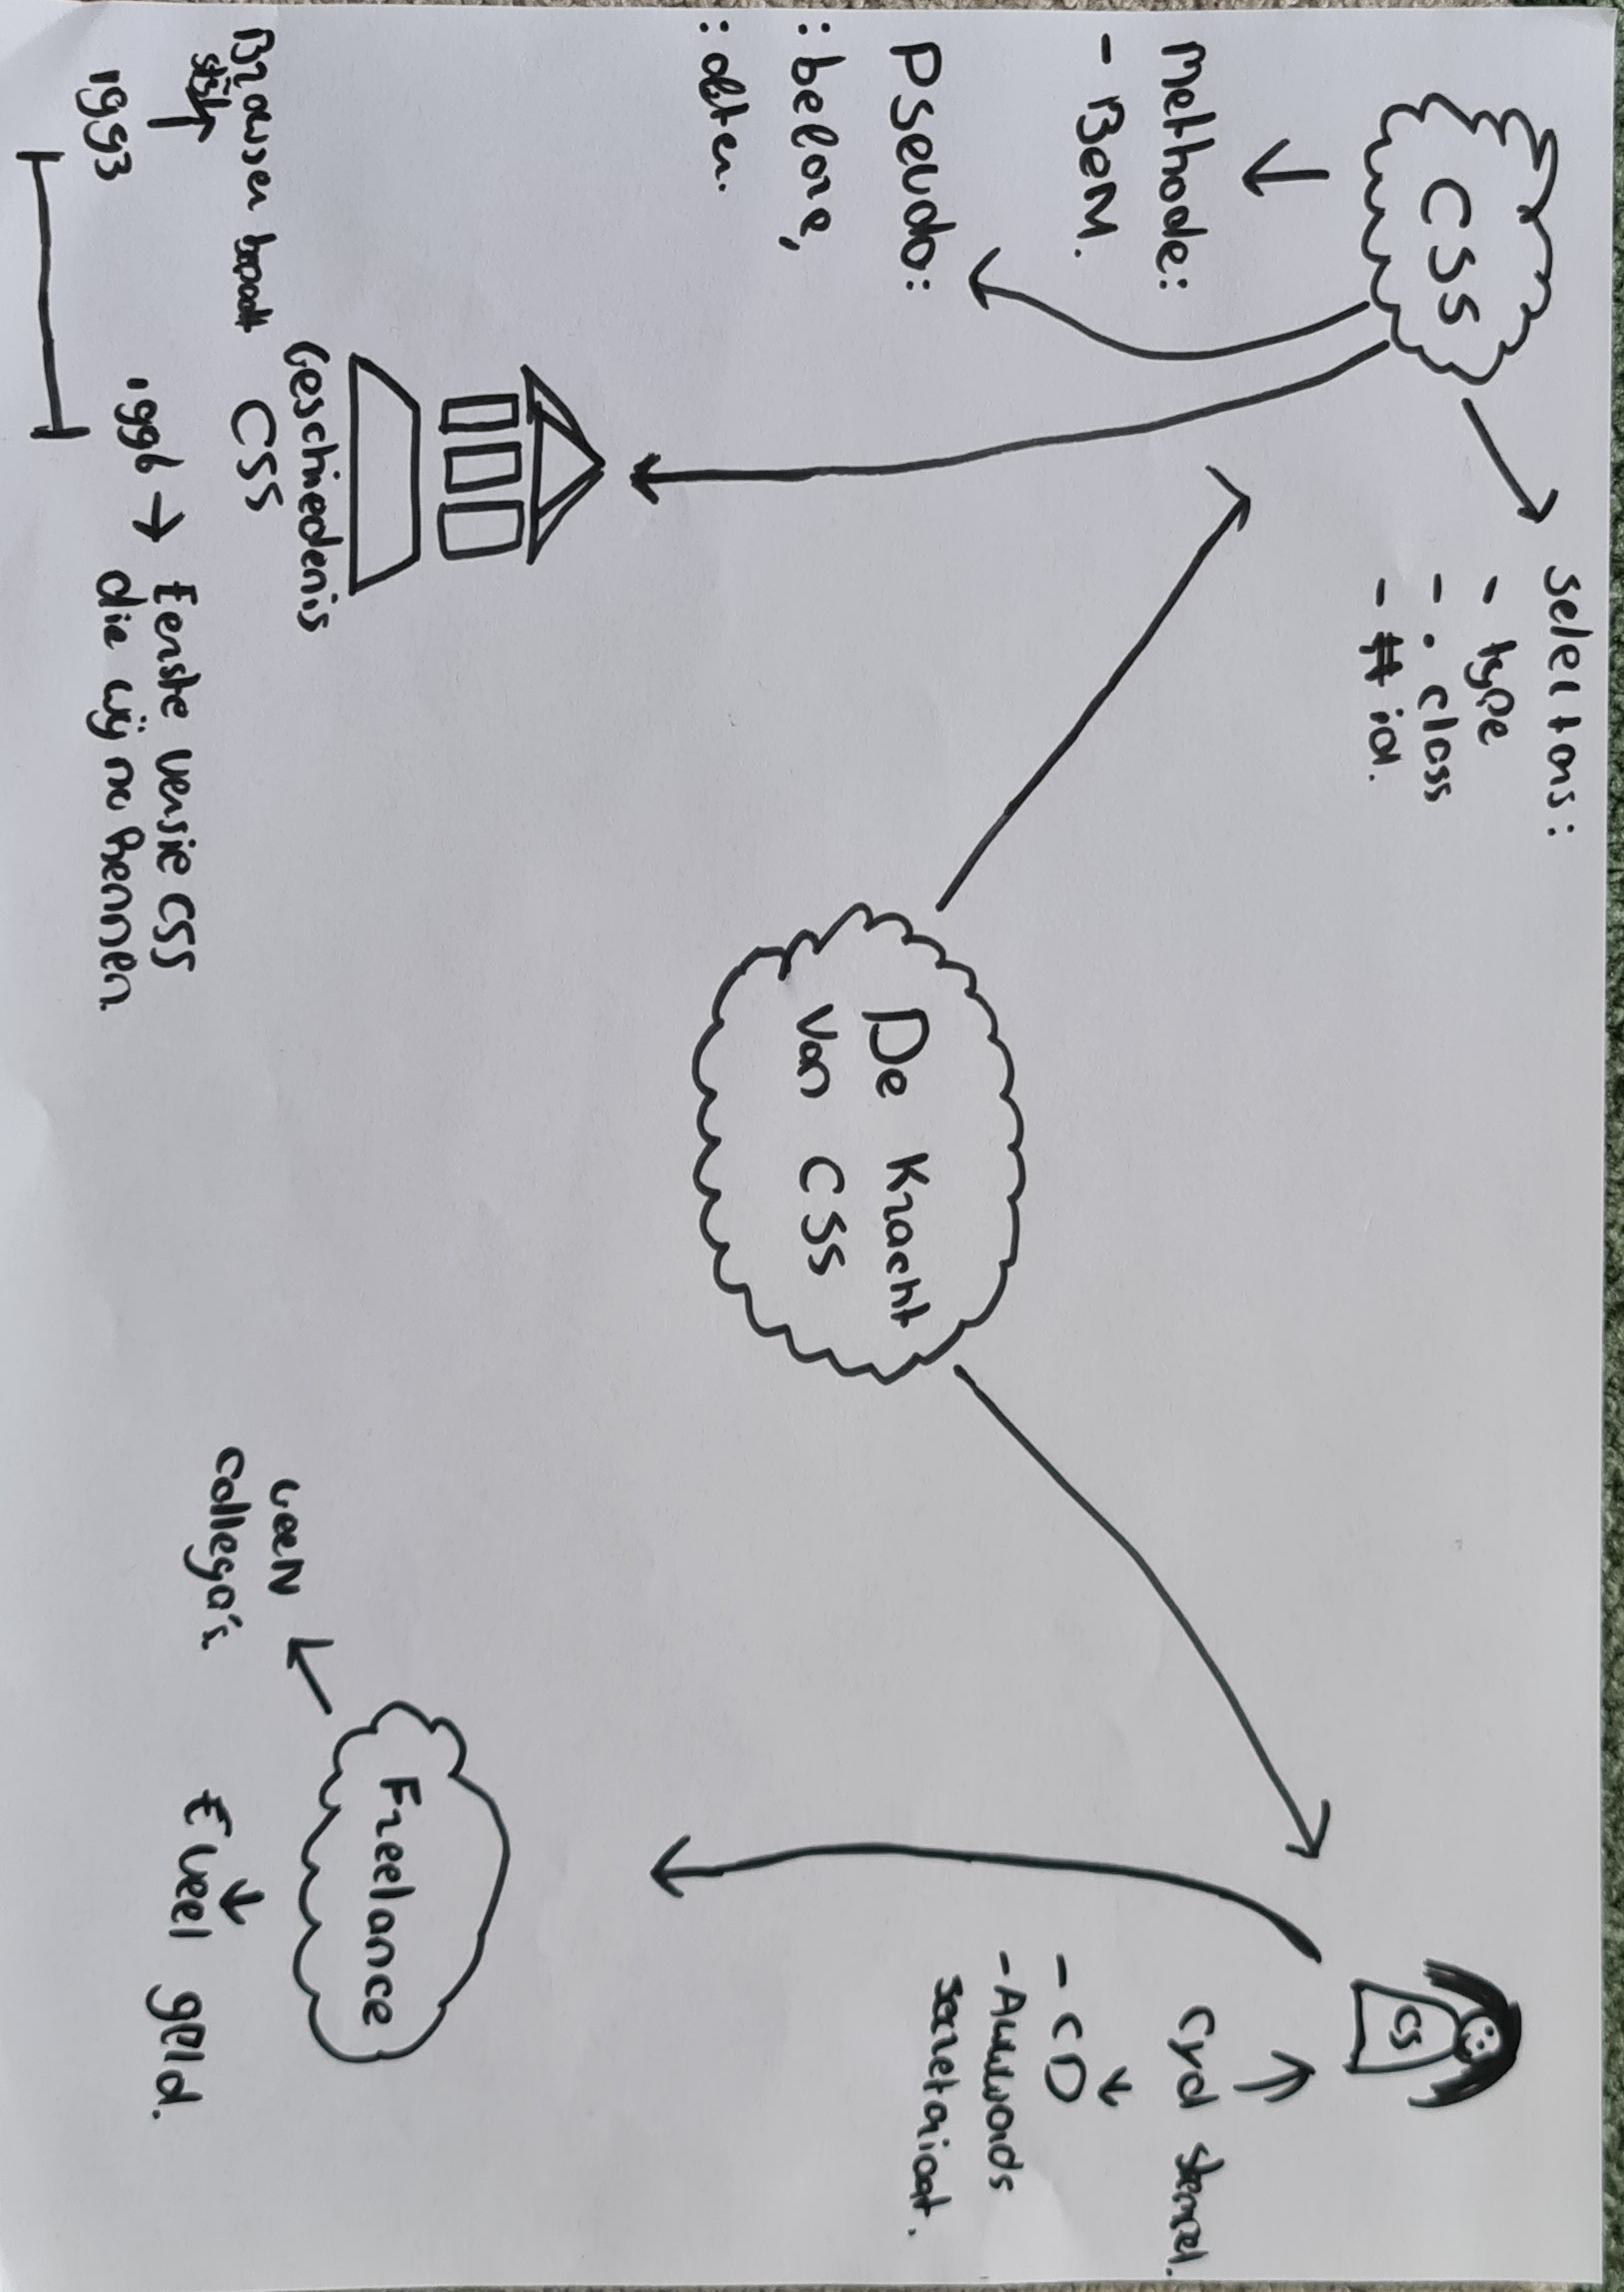 CSS
Selectors:
- type
- . class
- # id.
Methode:
- BEM.
Pseudo:
: before,
: after.
Geschiedenis
CSS
Browser
stijl
1993
1996 → Eerste versie CSS
die wij nu kennen
De Kracht
Van CSS
CS
Cyd Stumpel.
- CD
- Awwwards
secretariaat.
Freelance
Geen
collega's.
€ veel geld.